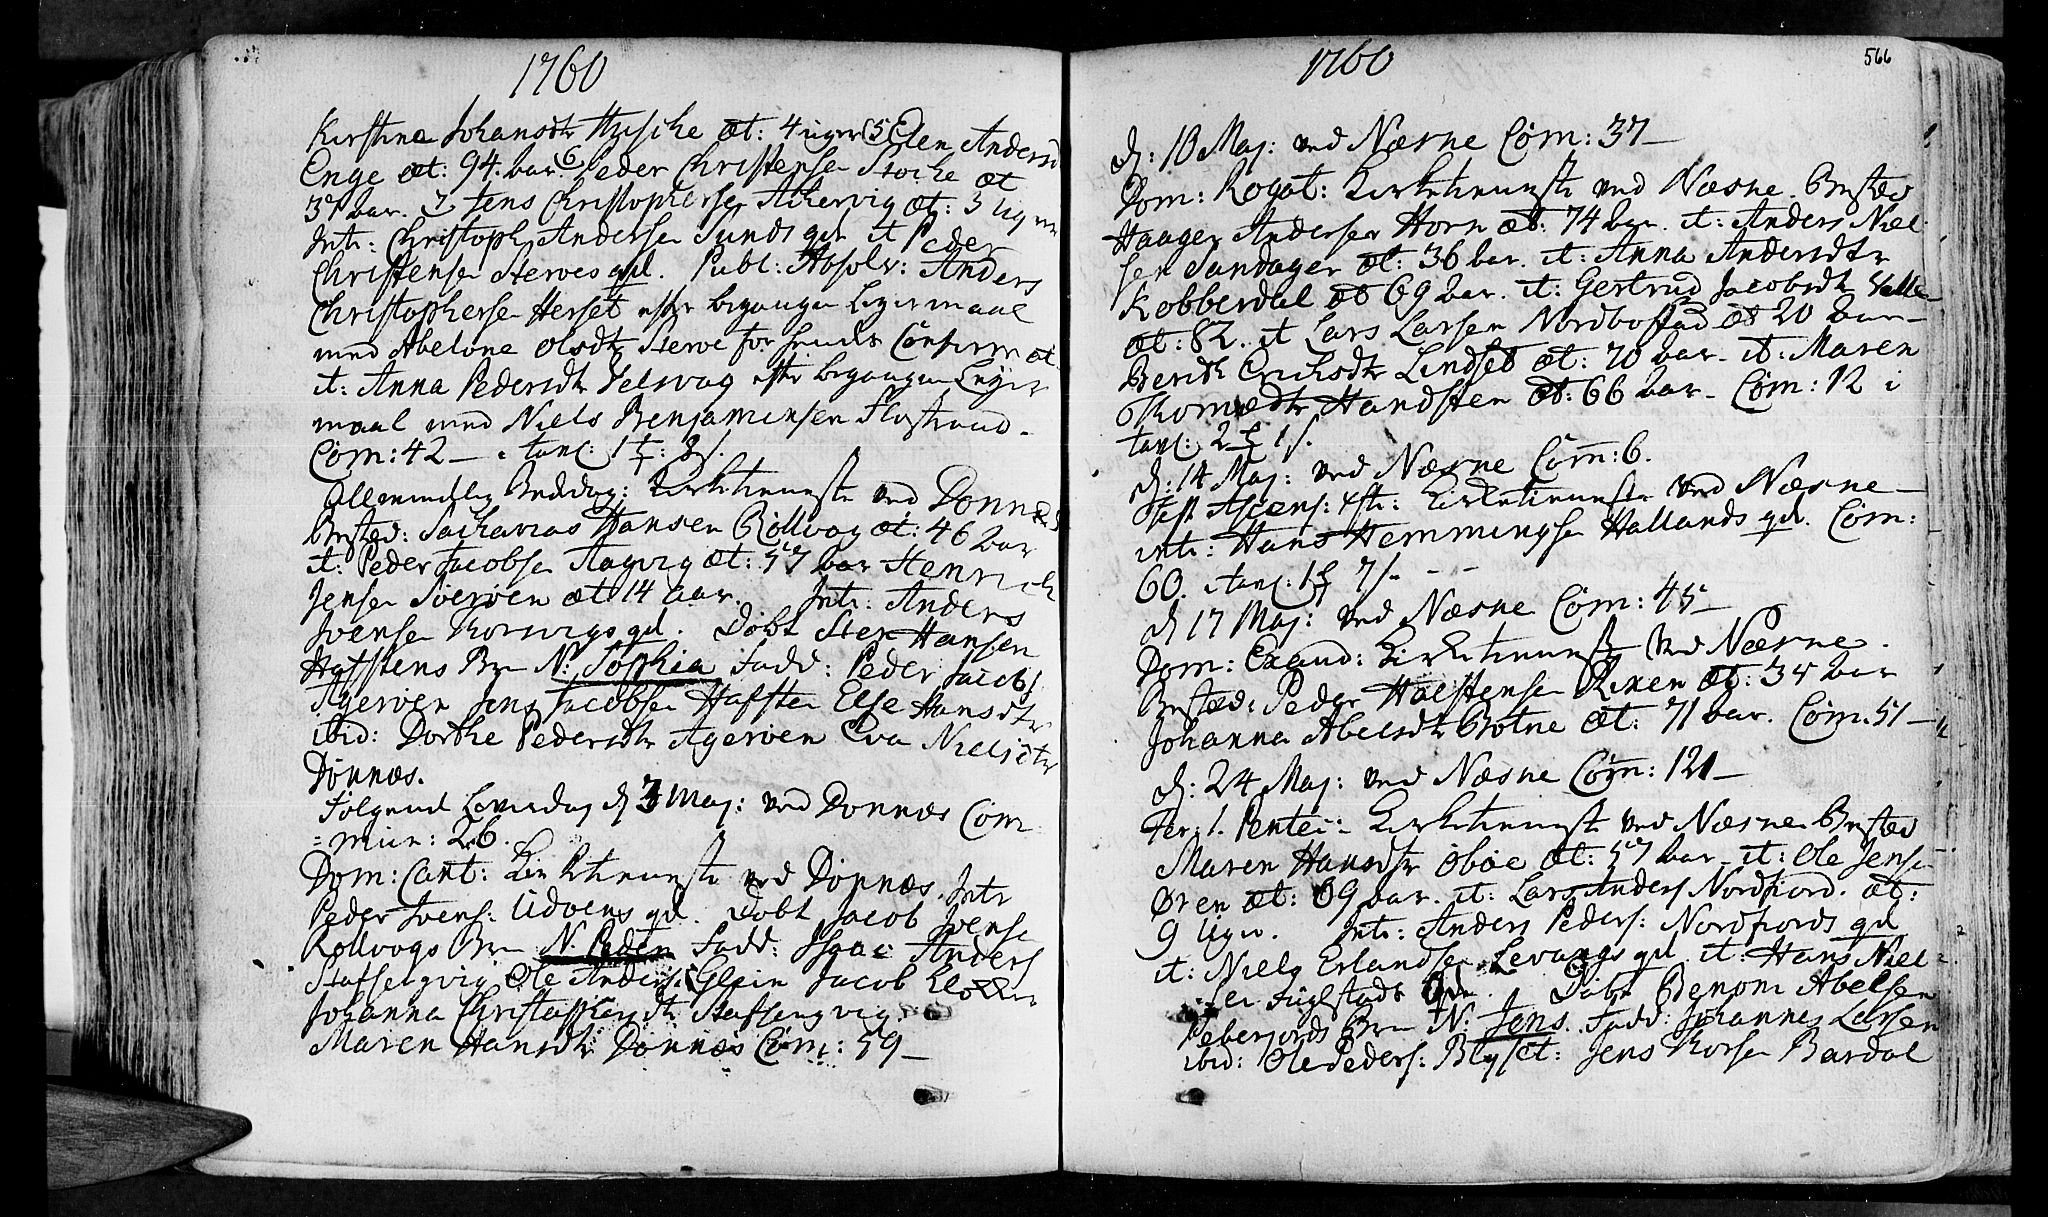 1760
Kirstine Johansdtr Husche æt: 4 uger (5 Elen Andersd
Enge æt: 94. bar (6 Peder Christensen Stoche æt
37 bar. 7 Jens Christophersen Achervig æt: 3 Uger
Intr: Christoph Andersen Sunds qd. it Peder
Christensen Sterves qd. Publ: Absolv: Anders
Christophersen Herset efter begangen Leyermaal
med Abelone Olsdtr Sterve for hendes Confirmat
it: Anna Pedersdtr Selsvog efter begangen Leyer
maal med Niels Benjaminsen Flostrand.
Com: 42 — tavl:
Allemindelig Bededag: Kirketieneste ved Dønnes
Bested: Sacharias Hansen Rollvog æt: 46 bar
it: Peder Jacobsen Aagvig æt: 57 bar Henrich
Jensen Soerøen æt 14 aar. Intr: Anders
Ivensen Korsvigs qd. Døbt Sten Hansen
Hafstens Brn N: Sophia Fadd: Peder Jacobs
Agerøen Jens Jacobsen Hafsten Else Hansdtr
ibid: Dorthe Pedersdtr Agerøen Eva Nielsdtr
Dønnæs.
Følgend Løverdag d 3 Maj: ved Dønnæs Com
= mun: 26.
Dom: Cant: Kirketieneste ved Dønnæs. Intr
Peder Ivens: Udøens qd. Døbt Jacob Ivensen
Rollvogs Brn N. Peder Fadd: Isaac Anders
Staffsengvig Ole Anders: Glein Jacob Klocker
Johanna Christophersdtr Staffsengvig
Maren Hansdtr Dønnæs Com: 59 —
1760
566
d: 10 Maj: ved Næsne Com: 37 —
Dom: Rogat: Kirketieneste ved Næsne. Bested
Haagen Andersen Horn æt: 74 bar. it: Anders Niel
sen Sandager æt: 36 bar. it: Anna Andersdtr
Kobberdal æt 69 bar. it: Gertrud Jacobsdtr Valle
æt: 82. it Lars Larsen Nordbostad æt 20 bar —
Berith Erichsdtr Lindset æt: 70 bar. it: Maren
Thomædtr Handsten æt: 66 bar. Com: 12 i
tavl: 2 1 s.
d: 14 Maj: ved Næsne Com: 6.
Fest Ascens: Xsti: Kirketieneste ved Næsne —
intr: Hans Hemmingsen Hallands qd. Com:
60. tavl: 1 7 s —
d 17 Maj: ved Næsne Com: 45 —
Dom: Exaud: Kirketieneste ved Næsne.
Bested: Peder Halstensen Renen æt: 34 bar
Johanna Abelsdtr Botne æt: 71 bar. Com: 51 —
d: 24 Maj: ved Næsne Com: 121 —
Fer: 1. Pentec: Kirketieneste ved Næsne Bested
Maren Hansdtr Oboe æt: 57 bar it: Ole Jensen
Øren æt: 69 bar. it: Lars Anders Nordfiord. æt:
9 Uger. Intr: Anders Peders: Nordfiords qd
it: Niels Erlandsen Levangs qd. it: Hans Niel-
sen Fuglstads qd. Døbt Benoni Abelsen
Peberfiords Brn N: Jens. Fadd: Johannes Larsen
ibid: Ole Peders: Blyset: Jens Korsen Bardal